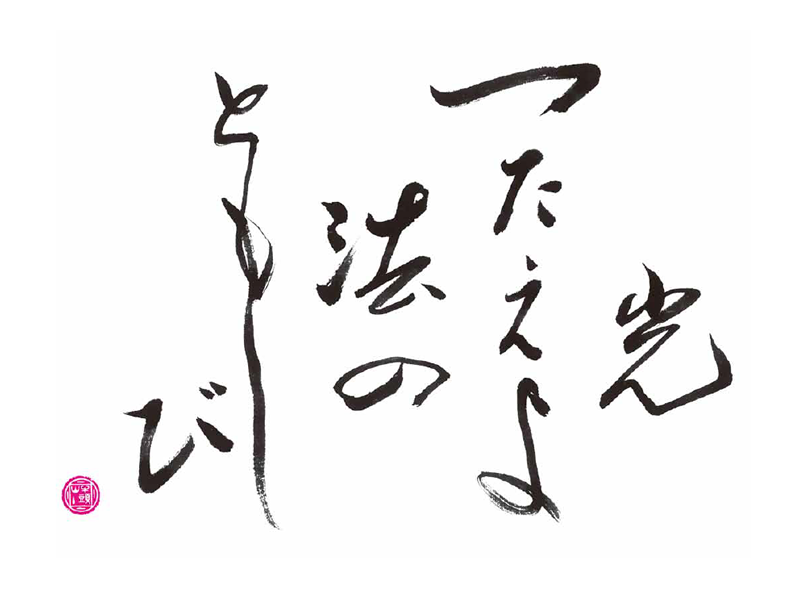 光
つたえよ
法の
ともしび